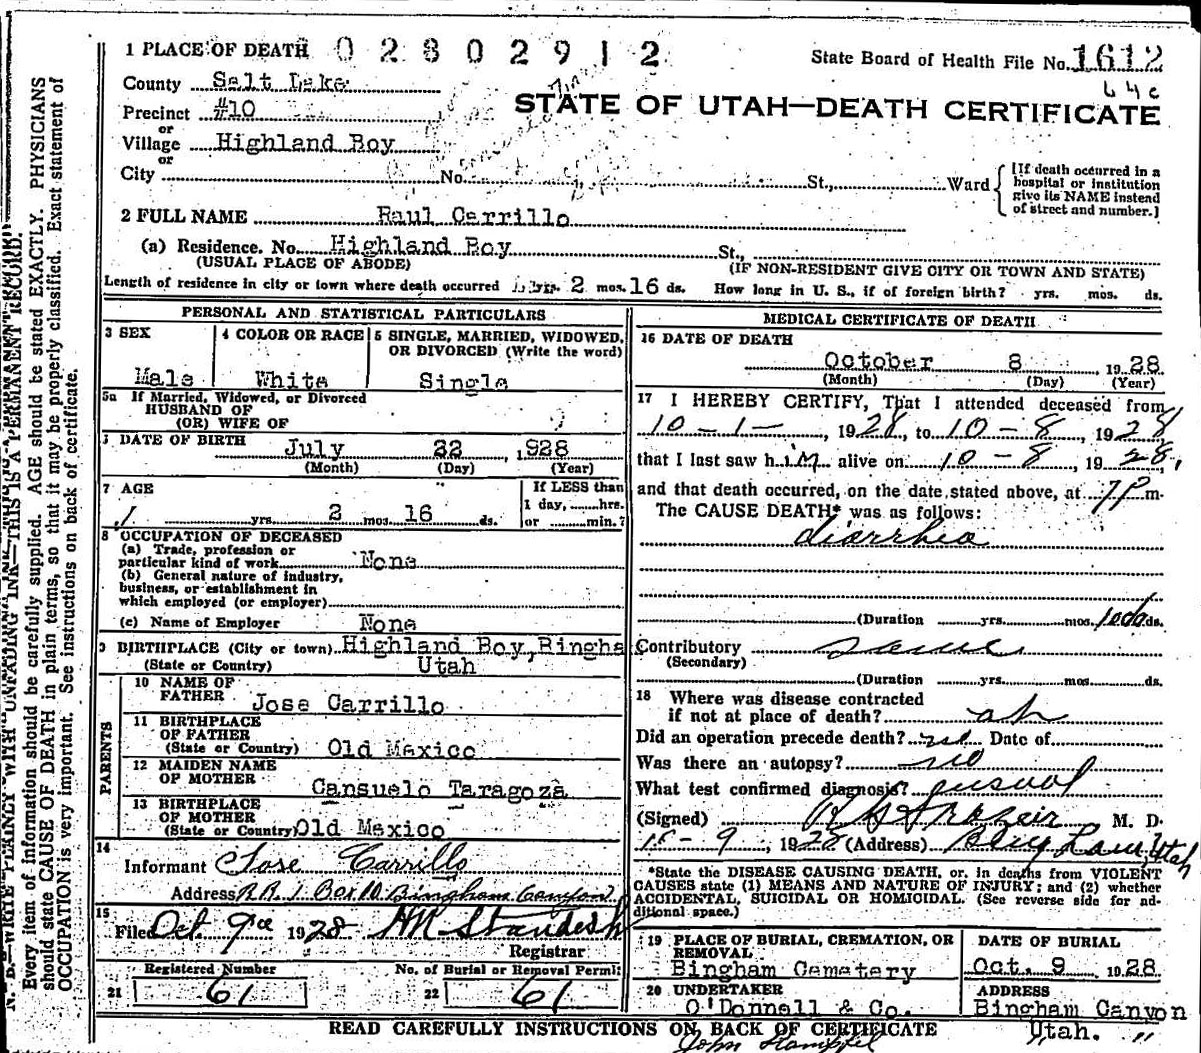 1 PLACE OF DEATH 02802912 State Board of Health File No. 1612
County Salt Lake 64c
Precinct #10 STATE OF UTAH—DEATH CERTIFICATE
or
Village Highland Boy
or
City No. St., Ward [If death occurred in a hospital or institution give its NAME instead of street and number.]
2 FULL NAME Raul Carrillo
(a) Residence. No. Highland Boy St.,
(USUAL PLACE OF ABODE) (IF NON-RESIDENT GIVE CITY OR TOWN AND STATE)
Length of residence in city or town where death occurred yrs. 2 mos. 16 ds. How long in U. S., if of foreign birth? yrs. mos. ds.
PERSONAL AND STATISTICAL PARTICULARS
3 SEX 4 COLOR OR RACE 5 SINGLE, MARRIED, WIDOWED,
OR DIVORCED (Write the word)
Male White Single
5a If Married, Widowed, or Divorced
HUSBAND OF
(OR) WIFE OF
DATE OF BIRTH July 22 , 1928
(Month) (Day) (Year)
7 AGE If LESS than
1 day, hrs.
yrs. 2 mos. 16 ds. or min.?
8 OCCUPATION OF DECEASED
(a) Trade, profession or
particular kind of work None
(b) General nature of industry,
business, or establishment in
which employed (or employer)
(c) Name of Employer None
9 BIRTHPLACE (City or town) Highland Boy, Bingha
(State or Country) Utah
PARENTS
10 NAME OF
FATHER Jose Carrillo
11 BIRTHPLACE
OF FATHER
(State or Country) Old Mexico
12 MAIDEN NAME
OF MOTHER Cansuelo Taragoza
13 BIRTHPLACE
OF MOTHER
(State or Country) Old Mexico
14
Informant Jose Carrillo
Address R.R. 1 Box Bingham Canyon
15
Filed Oct. 9 1928 HN Standish
Registrar
Registered Number No. of Burial or Removal Permit
21 61 22 61
MEDICAL CERTIFICATE OF DEATH
16 DATE OF DEATH
October 8 1928
(Month) (Day) (Year)
17 I HEREBY CERTIFY, That I attended deceased from
10-1- , 1928, to 10-8 , 1928
that I last saw him alive on 10-8 , 1928,
and that death occurred, on the date stated above, at 7 P m.
The CAUSE DEATH* was as follows:
diarrhea
(Duration yrs. mos. ds.
Contributory same
(Secondary)
(Duration yrs. mos. ds.
18 Where was disease contracted
if not at place of death?
Did an operation precede death? no Date of
Was there an autopsy? no
What test confirmed diagnosis? usual
(Signed) Frazier M. D.
10-9 , 1928 (Address) Utah
*State the DISEASE CAUSING DEATH, or, in deaths from VIOLENT
CAUSES state (1) MEANS AND NATURE OF INJURY; and (2) whether
ACCIDENTAL, SUICIDAL OR HOMICIDAL. (See reverse side for ad-
ditional space.)
19 PLACE OF BURIAL, CREMATION, OR REMOVAL DATE OF BURIAL
Bingham Cemetery Oct. 9 1928
20 UNDERTAKER ADDRESS
O'Donnell & Co. Bingham Canyon
READ CAREFULLY INSTRUCTIONS ON BACK OF CERTIFICATE Utah.
John
N. B.—WRITE PLAINLY WITH UNFADING INK—THIS IS A PERMANENT RECORD.
Every item of information should be carefully supplied. AGE should be stated EXACTLY. PHYSICIANS
should state CAUSE OF DEATH in plain terms, so that it may be properly classified. Exact statement of
OCCUPATION is very important. See instructions on back of certificate.